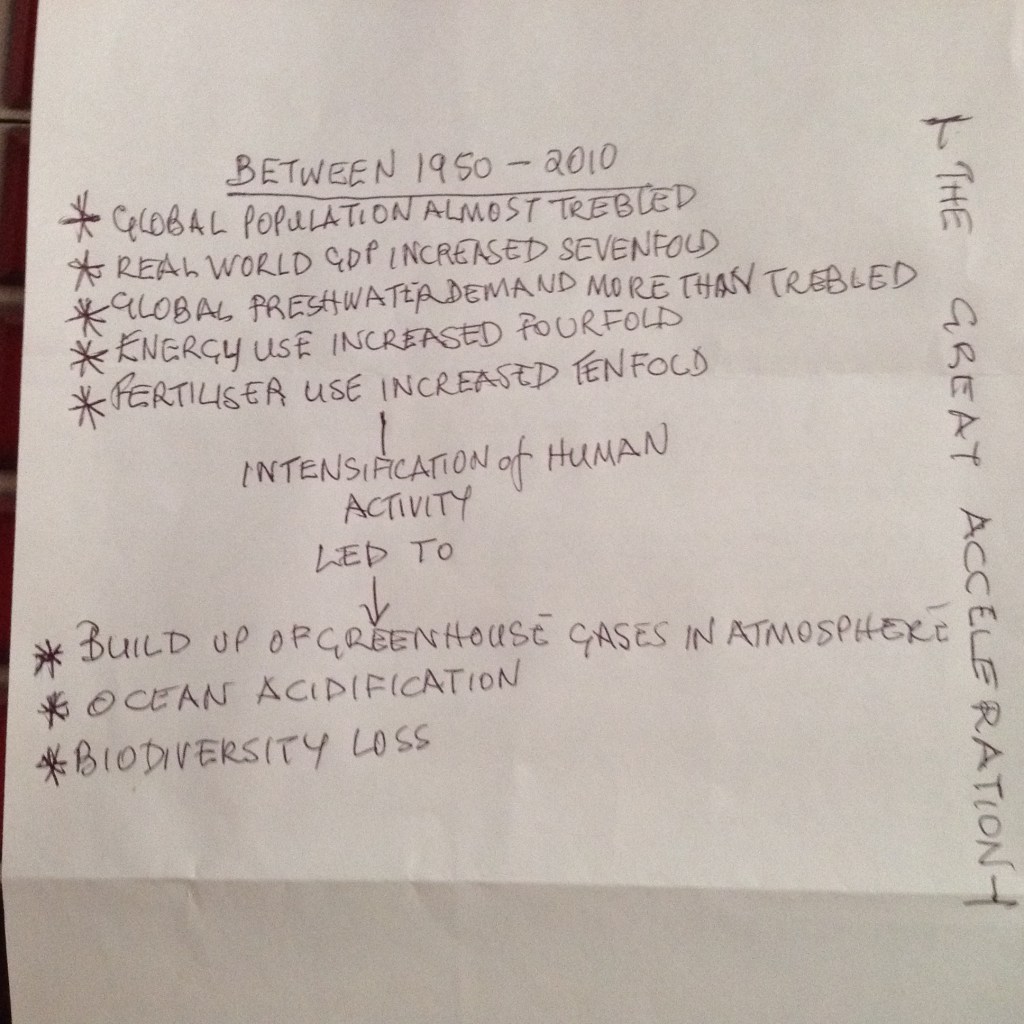 BETWEEN 1950 - 2010
* GLOBAL POPULATION ALMOST TREBLED
* REAL WORLD GDP INCREASED SEVENFOLD
* GLOBAL FRESHWATER DEMAND MORE THAN TREBLED
* ENERGY USE INCREASED FOURFOLD
* FERTILISER USE INCREASED TENFOLD
INTENSIFICATION of HUMAN
ACTIVITY
LED TO
* BUILD UP OF GREENHOUSE GASES IN ATMOSPHERE
* OCEAN ACIDIFICATION
* BIODIVERSITY LOSS
THE GREAT ACCELERATION